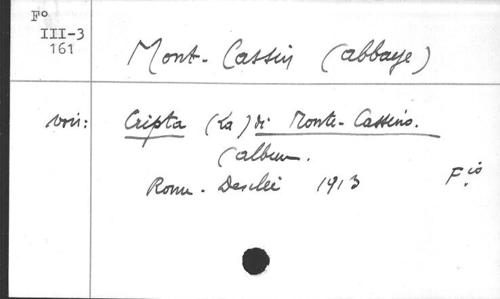 Fº
III-3
161
Mont-Cassin (abbaye)
voir: Cripta (La) di Monte-Cassino.
(album.
Rome. Desclée 1913 Fº